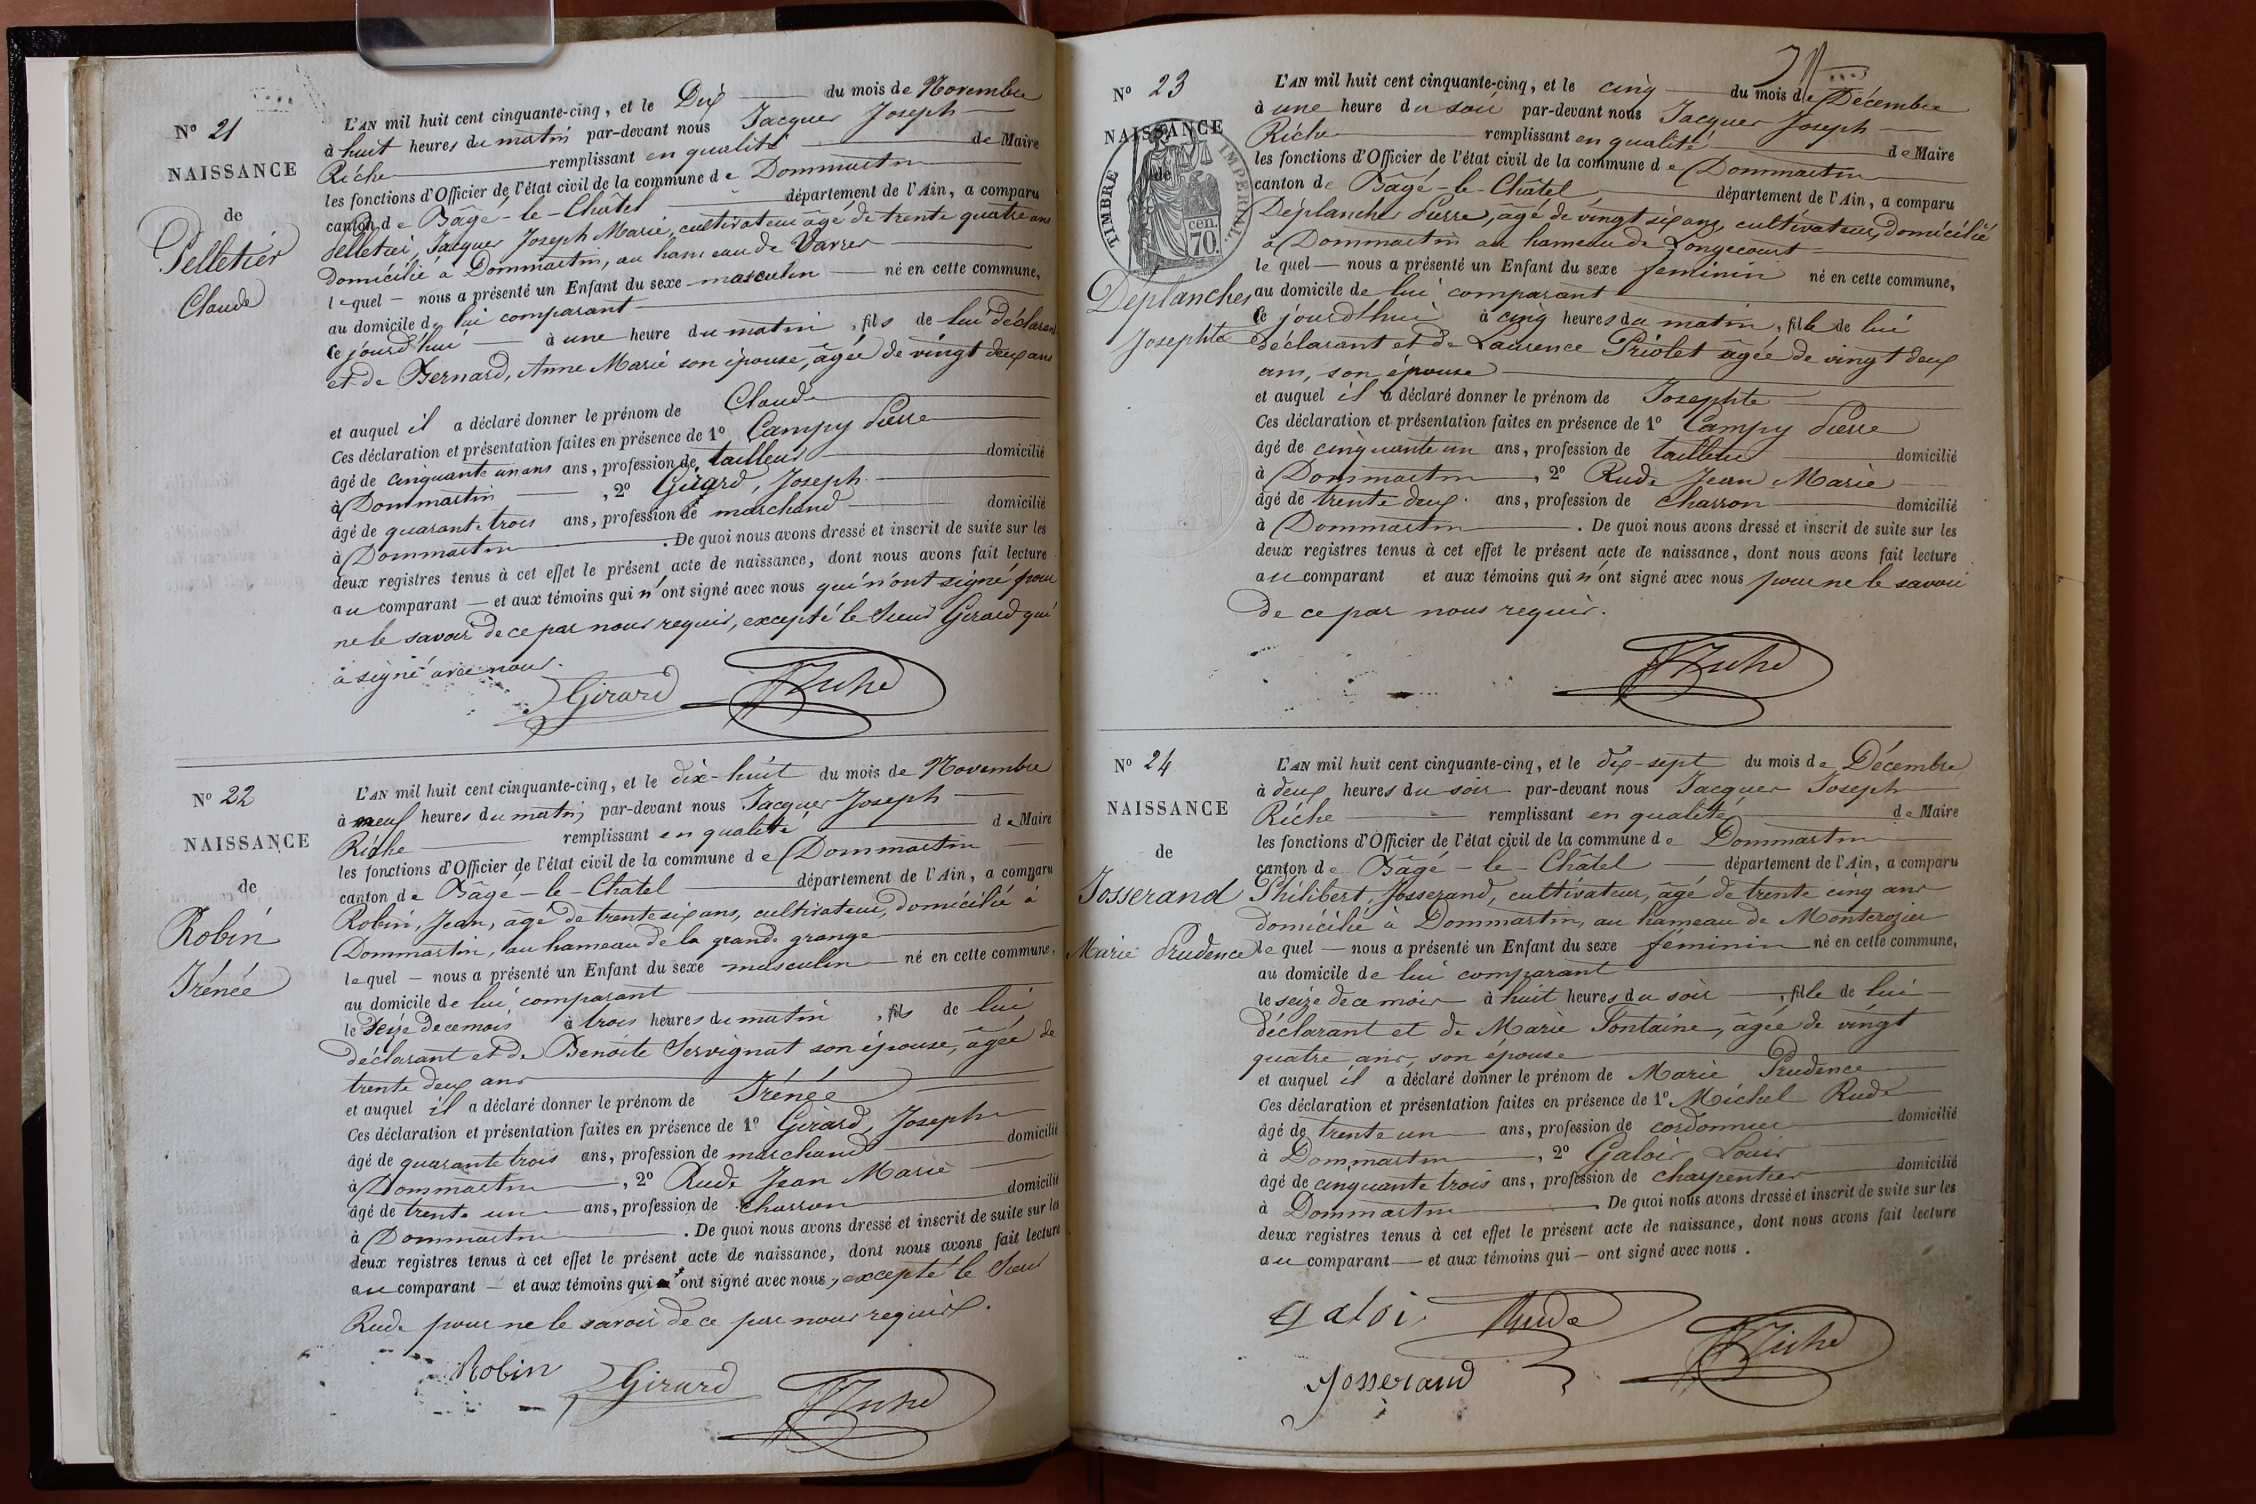 N° 21
NAISSANCE
de
Pelletier
Claude
L'AN mil huit cent cinquante-cinq, et le Dix du mois de Novembre
à huit heures du matin par-devant nous Jacques Joseph
Riche remplissant en qualité de Maire
les fonctions d'Officier de l'état civil de la commune de Dommartin
canton de Bâgé-le-Châtel département de l'Ain, a comparu
Pelletier, Jacques Joseph Marie, cultivateur âgé de trente quatre ans
domicilié à Dommartin, au hameau de Varres
lequel — nous a présenté un Enfant du sexe masculin né en cette commune,
au domicile de lui comparant
ce jourd'hui à une heure du matin, fils de lui déclarant
et de Bernard, Anne Marie son épouse, âgée de vingt deux ans
et auquel il a déclaré donner le prénom de Claude
Ces déclaration et présentation faites en présence de 1° Campy Pierre
âgé de cinquante un ans ans, profession de tailleur domicilié
à Dommartin, 2° Girard, Joseph
âgé de quarante trois ans, profession de marchand domicilié
à Dommartin. De quoi nous avons dressé et inscrit de suite sur les
deux registres tenus à cet effet le présent acte de naissance, dont nous avons fait lecture
au comparant — et aux témoins qui n'ont signé avec nous qui n'ont signé pour
ne le savoir de ce par nous requis, excepté le Sieur Girard qui
a signé avec nous.
Girard Riche
N° 22
NAISSANCE
de
Robin
Irénée
L'AN mil huit cent cinquante-cinq, et le dix-huit du mois de Novembre
à neuf heures du matin par-devant nous Jacques Joseph
Riche remplissant en qualité de Maire
les fonctions d'Officier de l'état civil de la commune de Dommartin
canton de Bâgé-le-Châtel département de l'Ain, a comparu
Robin, Jean, âgé de trente six ans, cultivateur, domicilié à
Dommartin, au hameau de la grande grange
lequel — nous a présenté un Enfant du sexe masculin né en cette commune,
au domicile de lui comparant
le seize de ce mois à trois heures du matin, fils de lui
déclarant et de Benoite Servignat son épouse, âgée de
trente deux ans
et auquel il a déclaré donner le prénom de Irénée
Ces déclaration et présentation faites en présence de 1° Girard, Joseph
âgé de quarante trois ans, profession de marchand domicilié
à Dommartin, 2° Rude Jean Marie
âgé de trente un ans, profession de charron domicilié
à Dommartin. De quoi nous avons dressé et inscrit de suite sur les
deux registres tenus à cet effet le présent acte de naissance, dont nous avons fait lecture
au comparant — et aux témoins qui ont signé avec nous, excepté le Sieur
Rude pour ne le savoir de ce par nous requis.
Robin Girard Riche
N° 23
NAISSANCE
de
TIMBRE IMPERIAL.
cen.
70
Déplanches
Josephte
L'AN mil huit cent cinquante-cinq, et le cinq du mois de Décembre
à une heure du soir par-devant nous Jacques Joseph
Riche remplissant en qualité de Maire
les fonctions d'Officier de l'état civil de la commune de Dommartin
canton de Bâgé-le-Châtel département de l'Ain, a comparu
Déplanches Pierre, âgé de vingt six ans, cultivateur, domicilié
à Dommartin au hameau de Longecourt
lequel — nous a présenté un Enfant du sexe féminin né en cette commune,
au domicile de lui comparant
Ce jourd'hui à cinq heures du matin, fille de lui
déclarant et de Laurence Priolet âgée de vingt deux
ans, son épouse
et auquel il a déclaré donner le prénom de Josephte
Ces déclaration et présentation faites en présence de 1° Campy Pierre
âgé de cinquante un ans, profession de tailleur domicilié
à Dommartin, 2° Rude Jean Marie
âgé de trente deux ans, profession de charron domicilié
à Dommartin. De quoi nous avons dressé et inscrit de suite sur les
deux registres tenus à cet effet le présent acte de naissance, dont nous avons fait lecture
au comparant et aux témoins qui n'ont signé avec nous pour ne le savoir
de ce par nous requis.
Riche
N° 24
NAISSANCE
de
Josserand
Marie Prudence
L'AN mil huit cent cinquante-cinq, et le dix-sept du mois de Décembre
à deux heures du soir par-devant nous Jacques Joseph
Riche remplissant en qualité de Maire
les fonctions d'Officier de l'état civil de la commune de Dommartin
canton de Bâgé-le-Châtel département de l'Ain, a comparu
Philibert, Josserand, cultivateur, âgé de trente cinq ans
domicilié à Dommartin, au hameau de Monterozier
lequel — nous a présenté un Enfant du sexe féminin né en cette commune,
au domicile de lui comparant
le seize de ce mois à huit heures du soir, fille de lui
déclarant et de Marie Fontaine, âgée de vingt
quatre ans, son épouse
et auquel il a déclaré donner le prénom de Marie Prudence
Ces déclaration et présentation faites en présence de 1° Michel Rude
âgé de trente un ans, profession de cordonnier domicilié
à Dommartin, 2° Galois, Louis
âgé de cinquante trois ans, profession de charpentier domicilié
à Dommartin. De quoi nous avons dressé et inscrit de suite sur les
deux registres tenus à cet effet le présent acte de naissance, dont nous avons fait lecture
au comparant — et aux témoins qui — ont signé avec nous.
galoi Rude
Josserand Riche